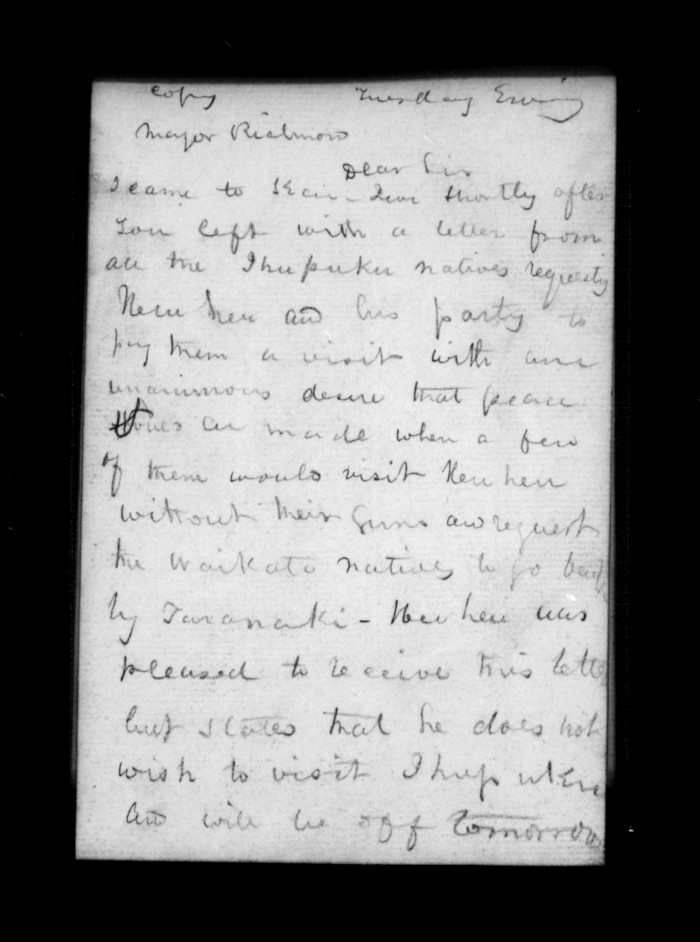 Copy Tuesday Evening
Major Richmond
Dear Sir
I came to Kai-Iwi shortly after
You left with a letter from
all the Ihupuku natives requesty
Heu heu and his party to
pay them a visit with one
unanimous desire that peace
be made when a few
of them would visit Heu heu
without their Guns and request
the Waikato natives to go back
by Taranaki - Heu heu was
pleased to receive this letter
but states that he does not
wish to visit Ihupuku
and will be off tomorrow